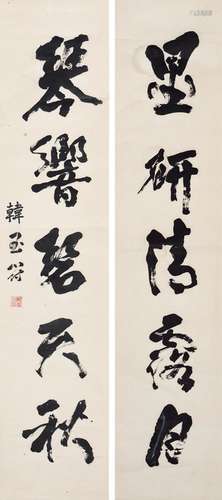 墨研清露月
琴響碧天秋
韓玉符